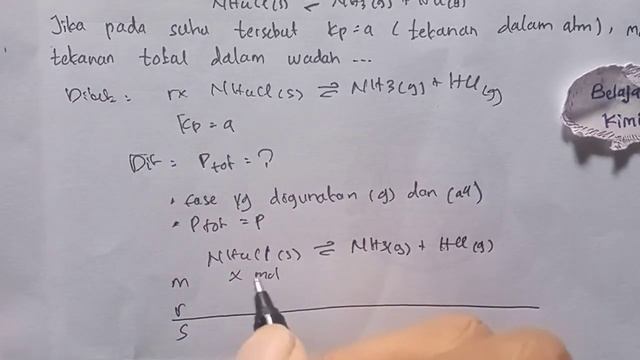 NH4Cl(s) ⇌ NH3(g) + HCl(g)
Jika pada suhu tersebut Kp=a (tekanan dalam atm), m
tekanan total dalam wadah ...
Diket : rx NH4Cl(s) ⇌ NH3(g) + HCl(g)
Kp = a
Dit = Ptot = ?
• fase yg digunakan (g) dan (aq)
• Ptot = P
NH4Cl(s) ⇌ NH3(g) + HCl(g)
m x mol
r
s
Belaja
Kimi